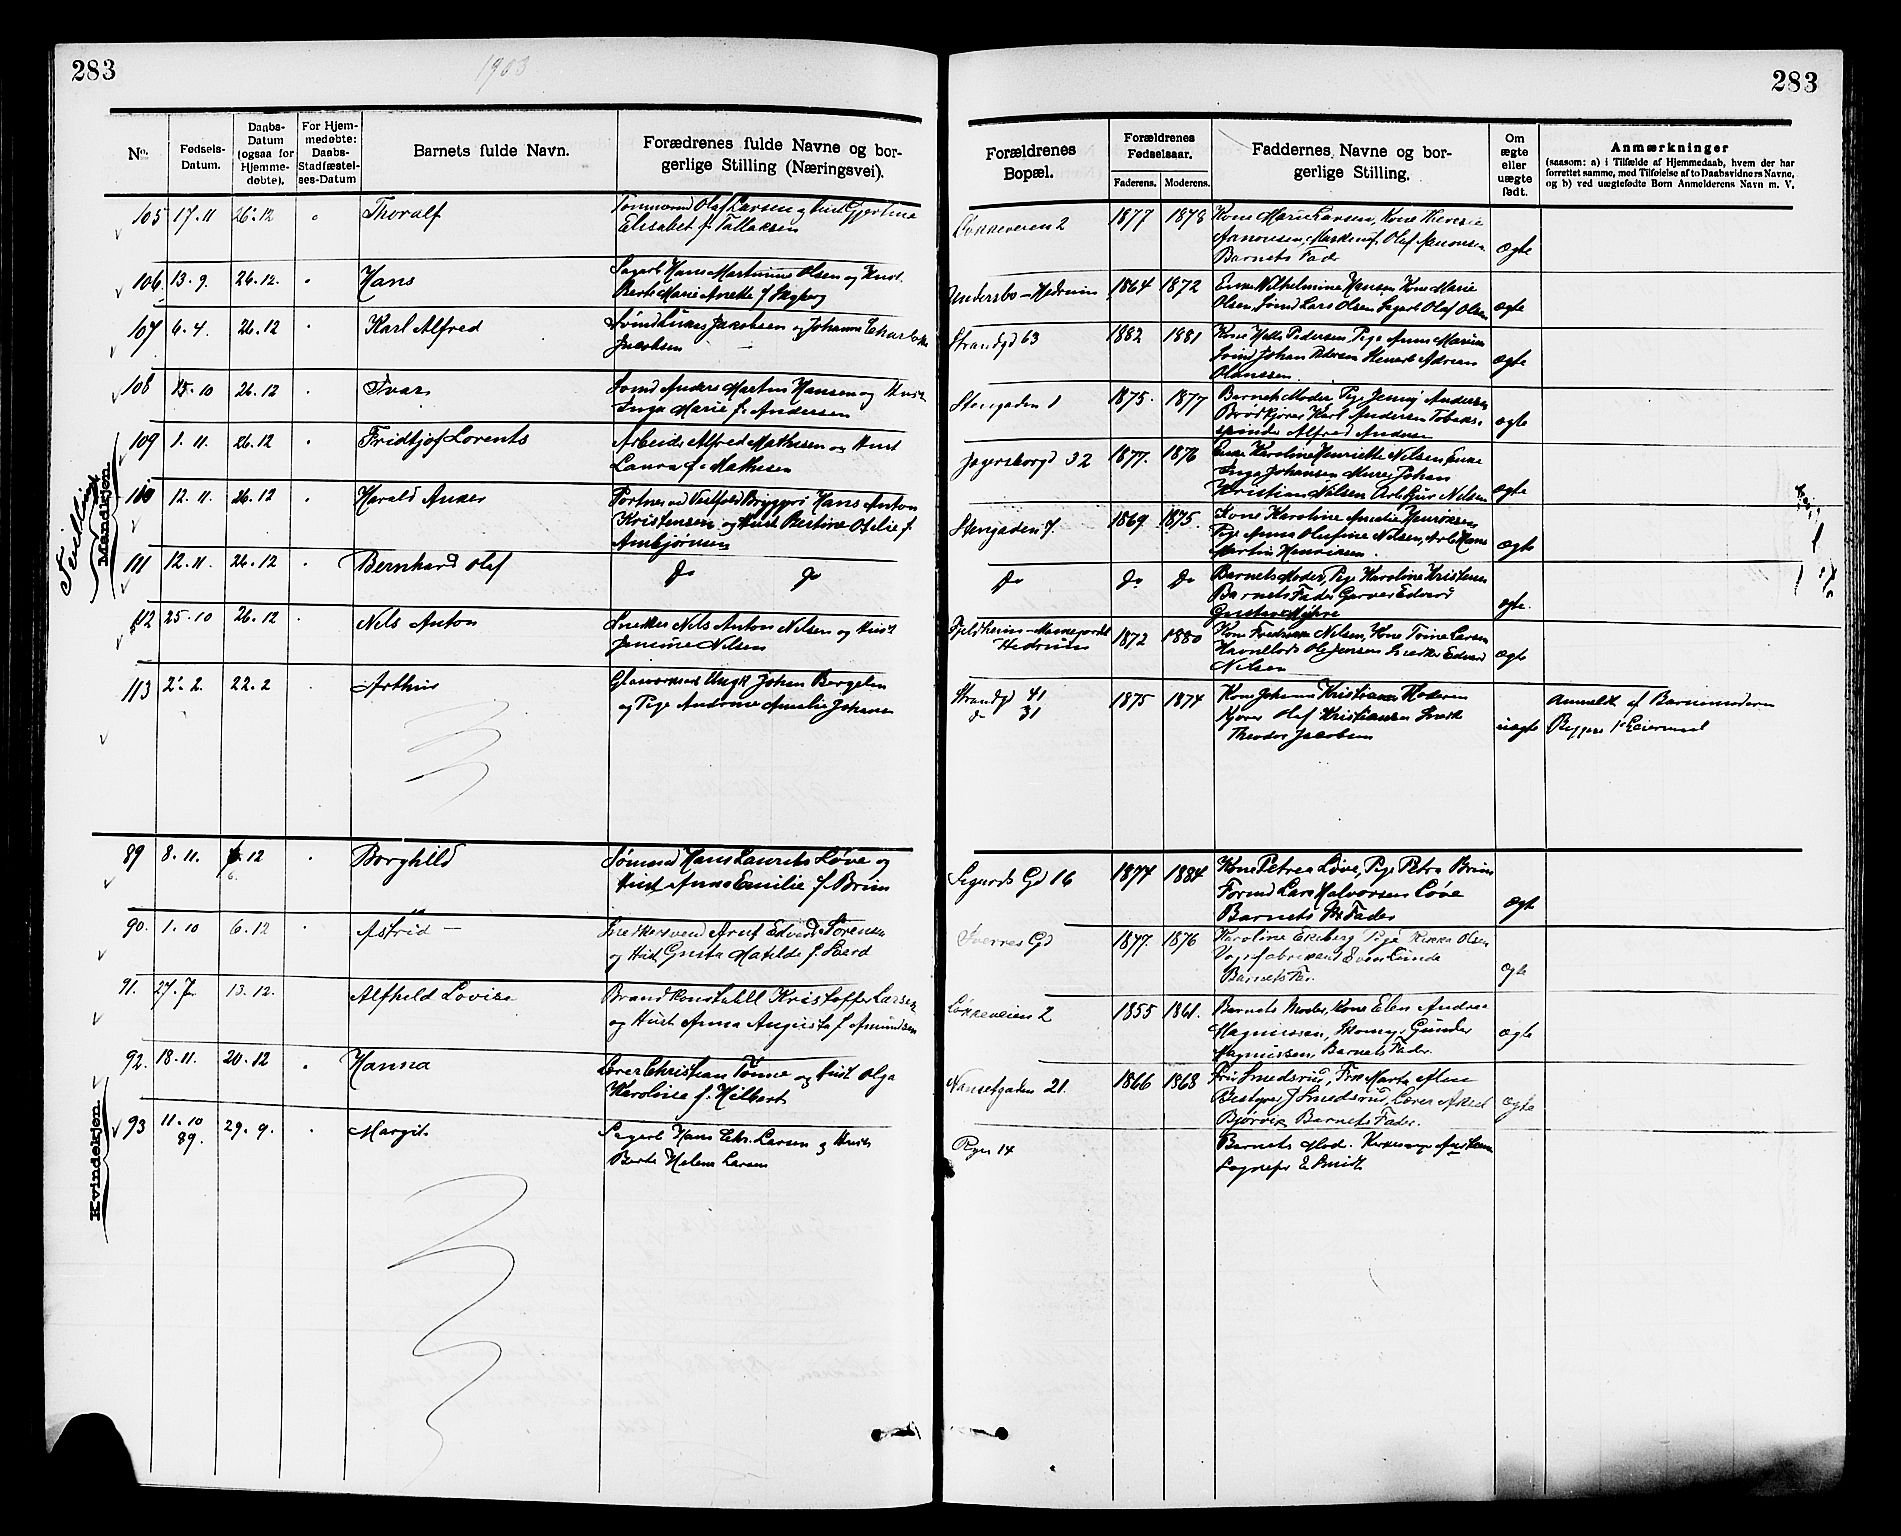 283
1903
283
No.
Fødsels-Datum.
Daabs-Datum (ogsaa for Hjemme-døbte).
For Hjem-medøbte: Daabs-Stadfæstel-ses-Datum
Barnets fulde Navn.
Forædrenes fulde Navne og bor-gerlige Stilling (Næringsvei).
Forældrenes Bopæl.
Forældrenes Fødselsaar.
Faderens. Moderens.
Faddernes Navne og bor-gerlige Stilling.
Om ægte eller uægte født.
Anmærkninger
(saasom: a) i Tilfælde af Hjemmedaab, hvem der har
forrettet samme, med Tilføielse af to Daabsvidners Navne,
og b) ved uægtefødte Børn Anmelderens Navn m. V.
Mandkjøn.
105 17.11 26.12 Thoralf
Tømmermd Olaf Larsen og Hust Gjertine
Elisabet f. Tallaksen
Løkkeveien 2 1877 1878
Kone Marie Larsen, Kone Therese
Aanonsen, Olaf Aanonsen
Barnets Fader
Ægte
106 13.9. 26.12. Hans
Sagarb Hans Martinius Olsen og Hust.
Berte Marie Anette f.
Hedrum 1864 1872
Enke Wilhelmine Hansen, Kone Marie
Olsen, Lars Olsen, Sagarb Olaf Olsen
ægte
107 6.4. 26.12 Karl Alfred
Jakobsen og Johanne
Jacobsen
Strandgd 63 1882 1881
Kone Pedersen, Pige Anna
Johan Adrian
Olaussen
Ægte
108 15.10 26.12 Ivar
Anders Martin Hansen og Hust
Inga Marie f. Andersen
Stengaden 1 1875. 1877
Barnets Moder, Pige Jenny Andersen
Brødkjører Karl Andersen Tobaks-
spinder Alfred Andersen
Ægte
109 1.11. 26.12 Fridtjof Lorents
Arbeider Alfred Mathisen og Hust
Laura f. Mathisen
Jegersborgd 32 1877. 1876
Enke Karoline Henriette Nilsen Enke
Inga Johansen Murer Johan
Kristian Nilsen Nilsen
Ægte
Tvillinger
110 12.11. 26.12 Harald Anker
Portner ved Vestfold Bryggeri Hans Anton
Kristensen og Hust Bertine Ofelie f.
Ambjørnsen
Stengaden 7. 1869. 1875.
Kone Karoline Amalie Henriksen
Pige Anna Olufine Nilsen, Arb Hans
Martin Henriksen.
Ægte
111 12.11. 26.12 Bernhard Olaf
Do Do
Do Do Do
Barnets Moder, Pige Karoline Kristensen
Barnets Fader Garver Edvard
Gustav Myhre
Ægte.
112 25.10 26.12 Nils Anton
Snekker Nils Anton Nilsen og Hust
Jensine Nilsen
Hedrum 1872 1880
Kone Fredrikke Nilsen, Kone Larsen
Havnelods Ole Jensen Snedker Edvard
Nilsen
Ægte
113 2.2. 22.2 Arthur
Glasværksarb Ungk Johan Bergelin
og Pige Andrine Amalie Johansen
Strandgd 41
do 31
1875 1874
Kone Johanne Kristiansen Moderen
Kjører Olaf Kristiansen Snedk
Theodor Jacobsen
uægte
Anmeldt af Barnemoderen
Begges 1ste Leiermaal
Kvindekjøn.
89 8.11. 6.12 Borghild
Sømand Hans Laurits Løve og
Hust Anna Emilie f. Bruun
Sigurds Gd 16 1874 1884
Kone Petrea Løve, Pige Petra Bruun
Formd Lars Halvorsen Løve
Barnets Fader
Ægte
90. 1.10 6.12 Astrid
Snedkersvend Arnt Edvard Sørensen
og Hust Gusta Matilde f.
Sverres Gd 1877. 1876
Karoline Ekeberg Pige Rikka Olsen
Vognfabrikant Even Lunde
Barnets Far.
ægte
91. 27.7. 13.12. Alfhild Lovise
Brandkonstabel Kristoffer Larsen
og Hust Anna Augusta f. Amundsen
Løkkeveien 2 1855 1861.
Barnets Moder, Kone Elen Andrea
Magnussen, Skomgr Gunder
Magnussen, Barnets Fader.
Ægte
92. 18.11. 20.12 Hanna
Lærer Christian Tønne og Hust Olga
Karoline f. Hilbert
Nansetgaden 21. 1866 1868
Fru Smedsrud, Frk Marta
Bestyrer J Smedsrud, Lærer
Bjørvik Barnets Fader.
Ægte
93 11.10 89. 29.9. Margit
Sagarb Hans Chr. Larsen og Hust
Berte Helene Larsen
14
Barnets Mod.
Sognepr E Smidt